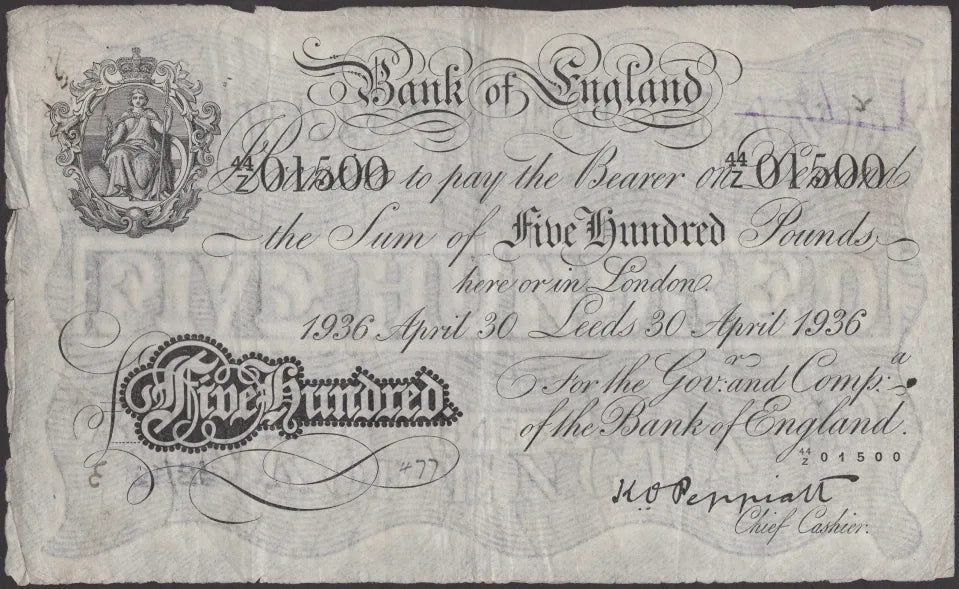 Bank of England
44/Z 01500 to pay the Bearer on Demand 44/Z 01500
the Sum of Five Hundred Pounds
here or in London.
1936 April 30 Leeds 30 April 1936
For the Gov.r and Comp.a
of the Bank of England.
Five Hundred
44/Z 01500
477
K O Peppiatt
Chief Cashier.
FIVE HUNDRED